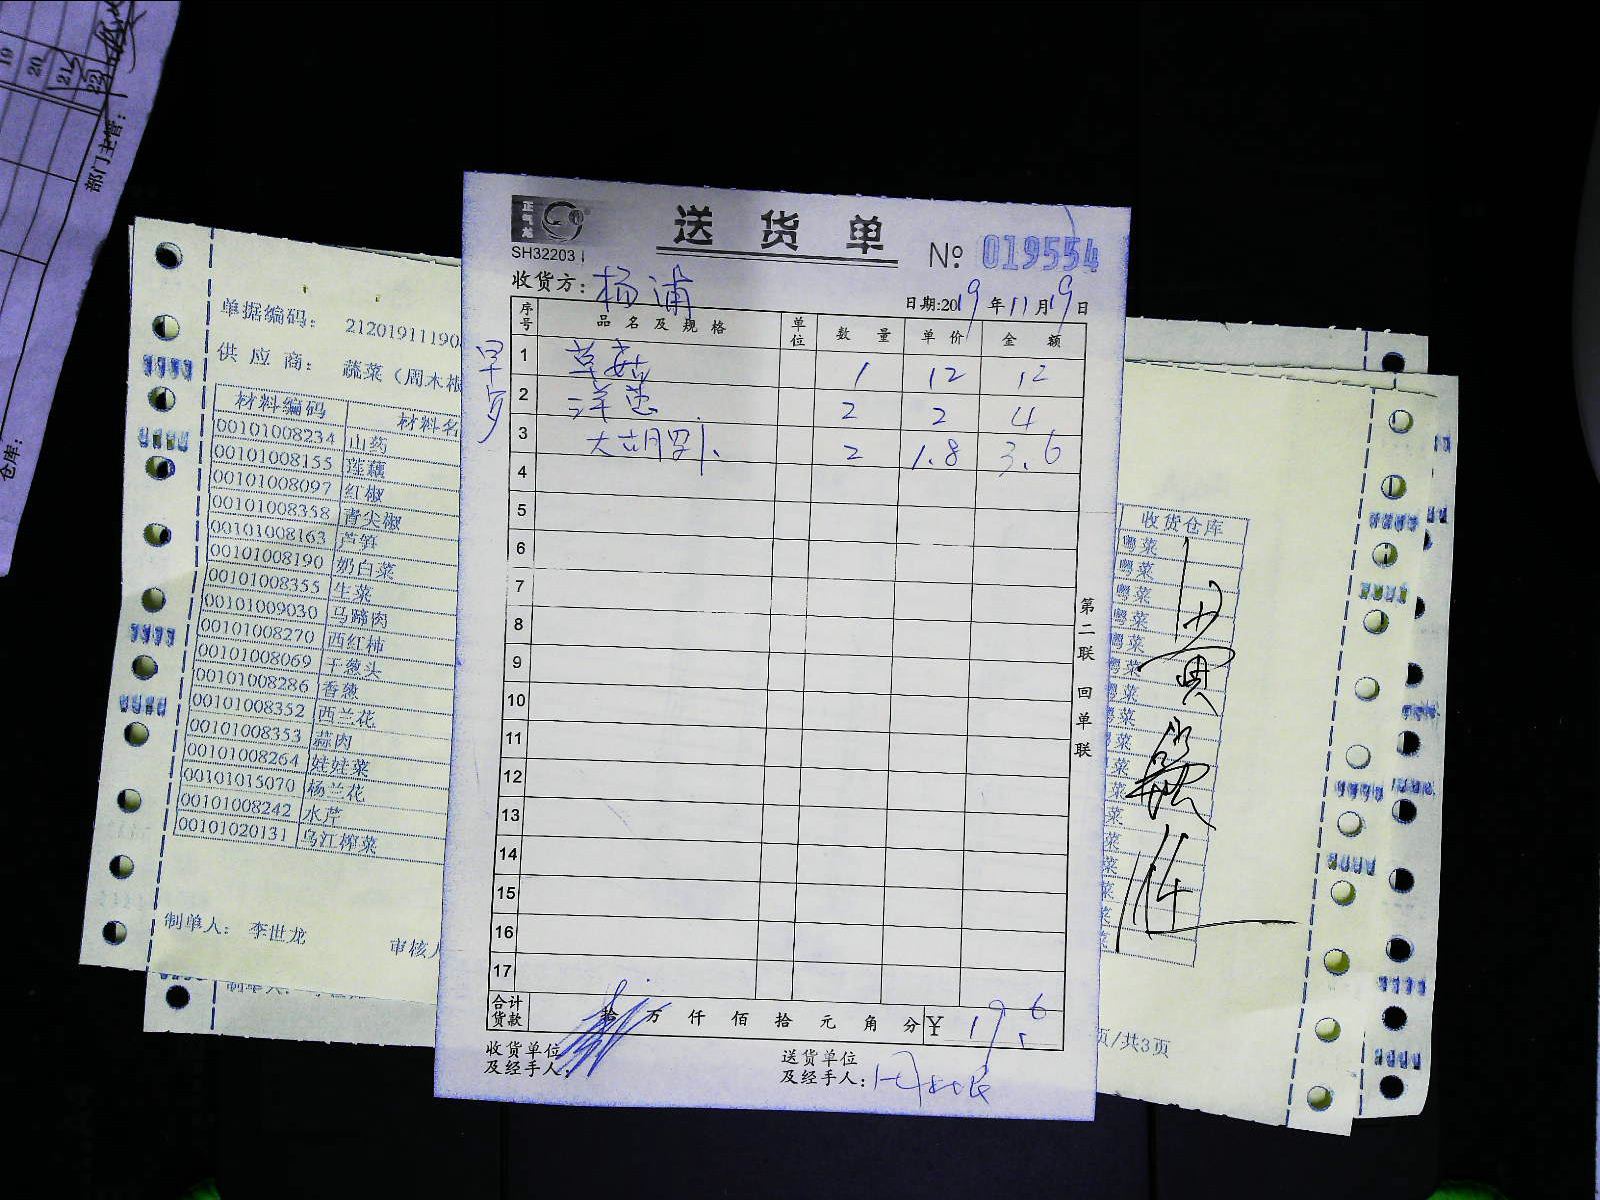 19
20
21
22
部门主管:
仓库:
单据编码: 21201911190
供应商: 蔬菜(周木根
材料编码 材料名
00101008234 山药
00101008155 莲藕
00101008097 红椒
00101008358 青尖椒
00101008163 芦笋
00101008190 奶白菜
00101008355 生菜
00101009030 马蹄肉
00101008270 西红柿
00101008069 干葱头
00101008286 香葱
00101008352 西兰花
00101008353 蒜肉
00101008264 娃娃菜
00101015070 杨兰花
00101008242 水芹
00101020131 乌江榨菜
制单人: 李世龙 审核人
正气龙
SH32203
送货单
№ 019554
收货方: 杨浦
日期:2019年11月19日
序号 品名及规格 单位 数量 单价 金额
1 草菇 1 12 12
2 洋葱 2 2 4
3 大胡萝卜 2 1.8 3.6
4
5
6
7
8
9
10
11
12
13
14
15
16
17
合计货款 拾万仟佰拾元角分 ¥ 19.6
收货单位及经手人:
送货单位及经手人: 周木根
第二联 回单联
收货仓库
粤菜
粤菜
粤菜
粤菜
粤菜
粤菜
粤菜
粤菜
菜
菜
菜
菜
菜
菜
菜
菜
页/共3页